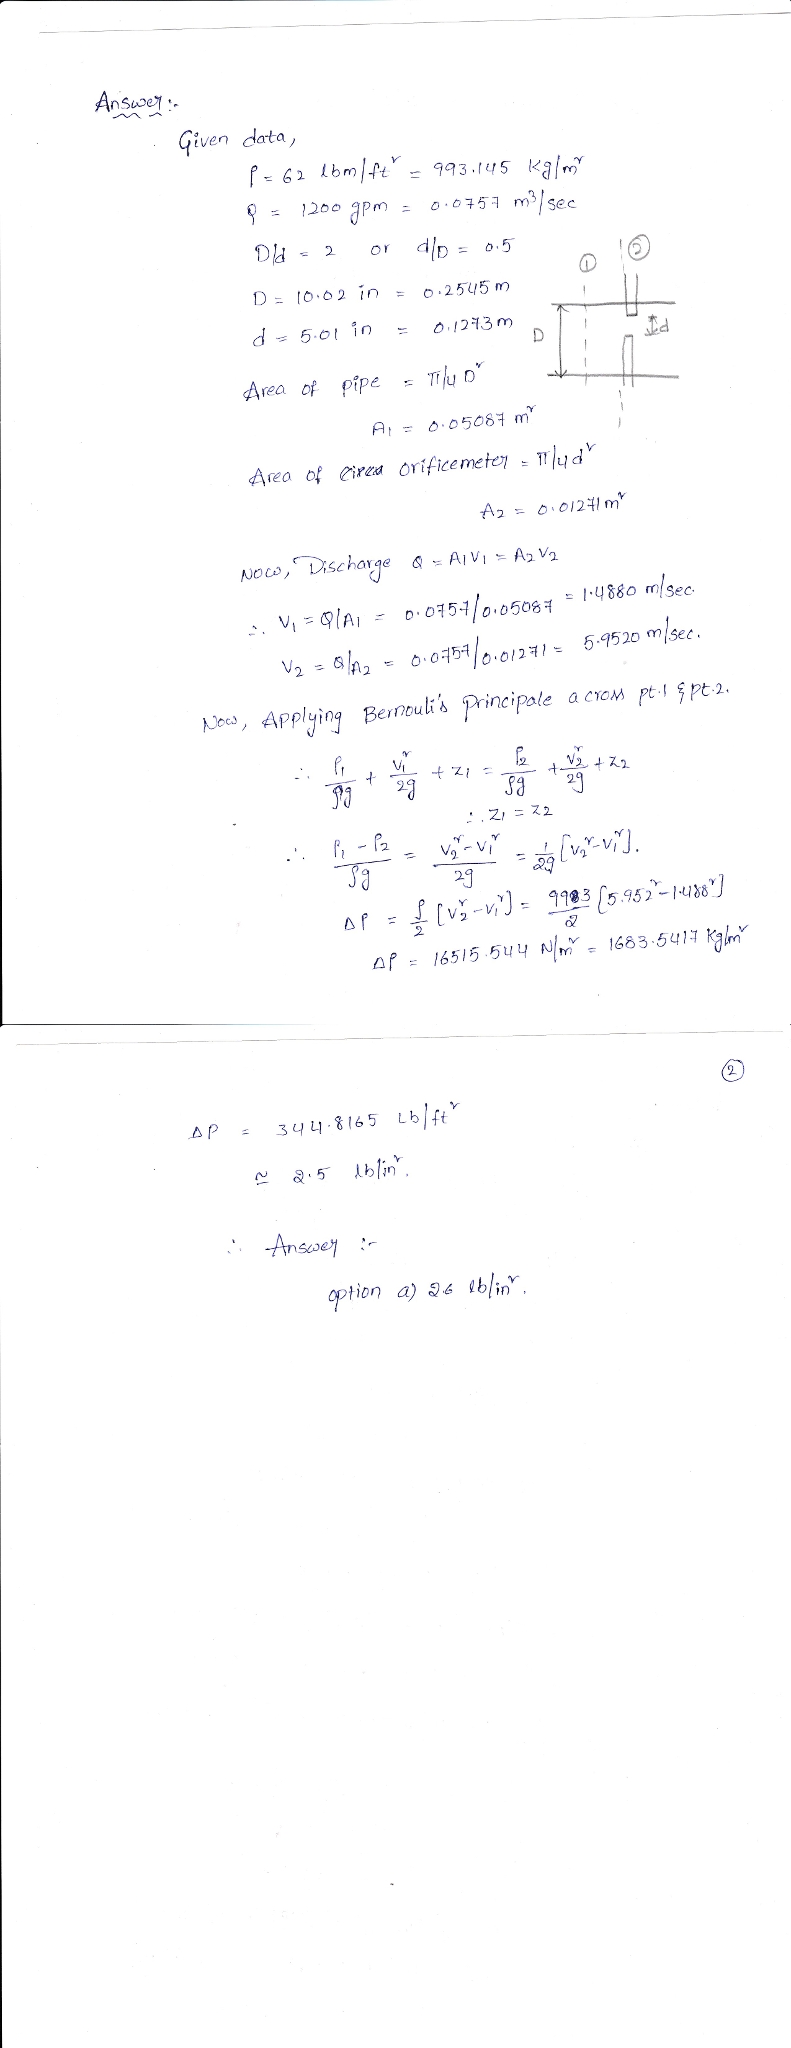 Answer :-
Given data,
ρ = 62 lbm/ft² = 993.145 kg/m²
Q = 1200 gpm = 0.0757 m³/sec
D/d = 2 or d/D = 0.5
① ②
D = 10.02 in = 0.2545 m
d = 5.01 in = 0.1273 m
D d
Area of pipe = π/4 D²
A₁ = 0.05087 m²
Area of orificemeter = π/4 d²
A₂ = 0.01271 m²
Now, Discharge Q = A₁V₁ = A₂V₂
∴ V₁ = Q/A₁ = 0.0757/0.05087 = 1.4880 m/sec.
V₂ = Q/A₂ = 0.0757/0.01271 = 5.9520 m/sec.
Now, Applying Bernouli's principale across pt.1 & pt.2.
∴ P₁/ρg + V₁²/2g + Z₁ = P₂/ρg + V₂²/2g + Z₂
∵ Z₁ = Z₂
∴ P₁ - P₂/ρg = V₂² - V₁²/2g = 1/2g [V₂² - V₁²].
ΔP = ρ/2 [V₂² - V₁²] = 9983/2 [5.952² - 1.488²]
ΔP = 16515.544 N/m² = 1683.5417 kg/m²
②
ΔP = 344.8165 Lb/ft²
≃ 2.5 lb/in².
∴ Answer :-
option a) 26 lb/in².